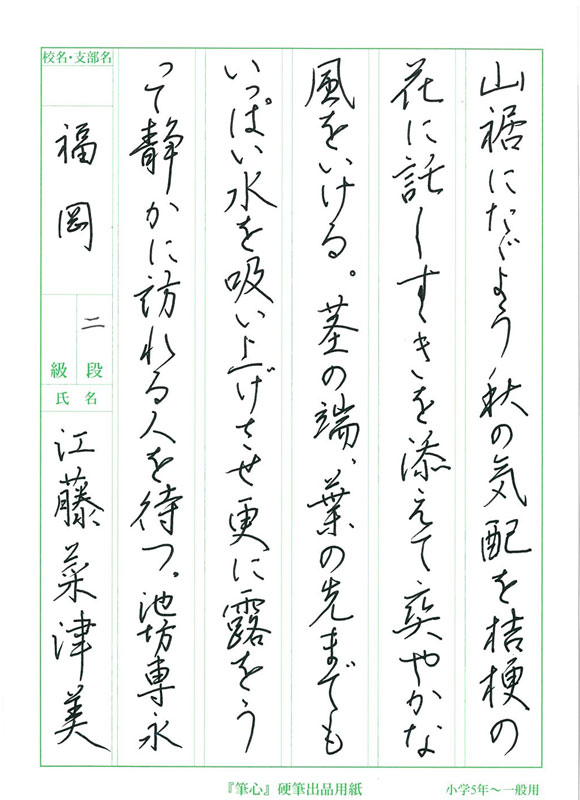 山裾にたゞよう秋の気配を桔梗の
花に託しすゝきを添えて爽やかな
風をいける。茎の端、葉の先までも
いっぱい水を吸い上げさせ更に露をう
って静かに訪れる人を待つ。池坊専永
校名・支部名
福岡
二
段
級
氏名
江藤菜津美
『筆心』硬筆出品用紙
小学5年～一般用